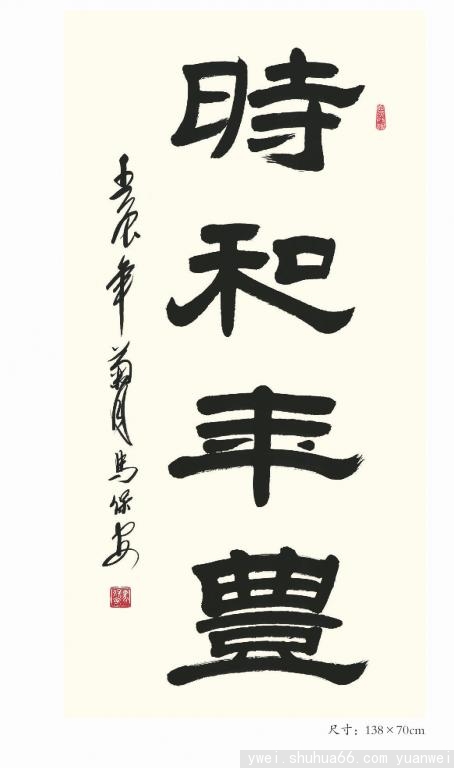 時和年豐
壬辰年菊月馬保安
尺寸：138×70cm
ywei.shuhua66.com yuanwei